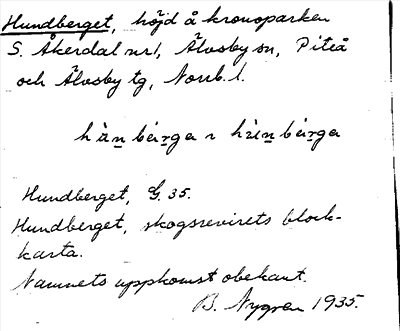 Hundberget, höjd å kronoparken
S. Åkerdal nr 1, Älvsby sn, Piteå
och Älvsby tg, Norrb. l.
hùn̠bær̠ga ~ hùn̠bær̠ga
Hundberget, G. 35.
Hundberget, skogsrevirets block-
karta.
Namnets uppkomst obekant.
B. Nygren 1935.